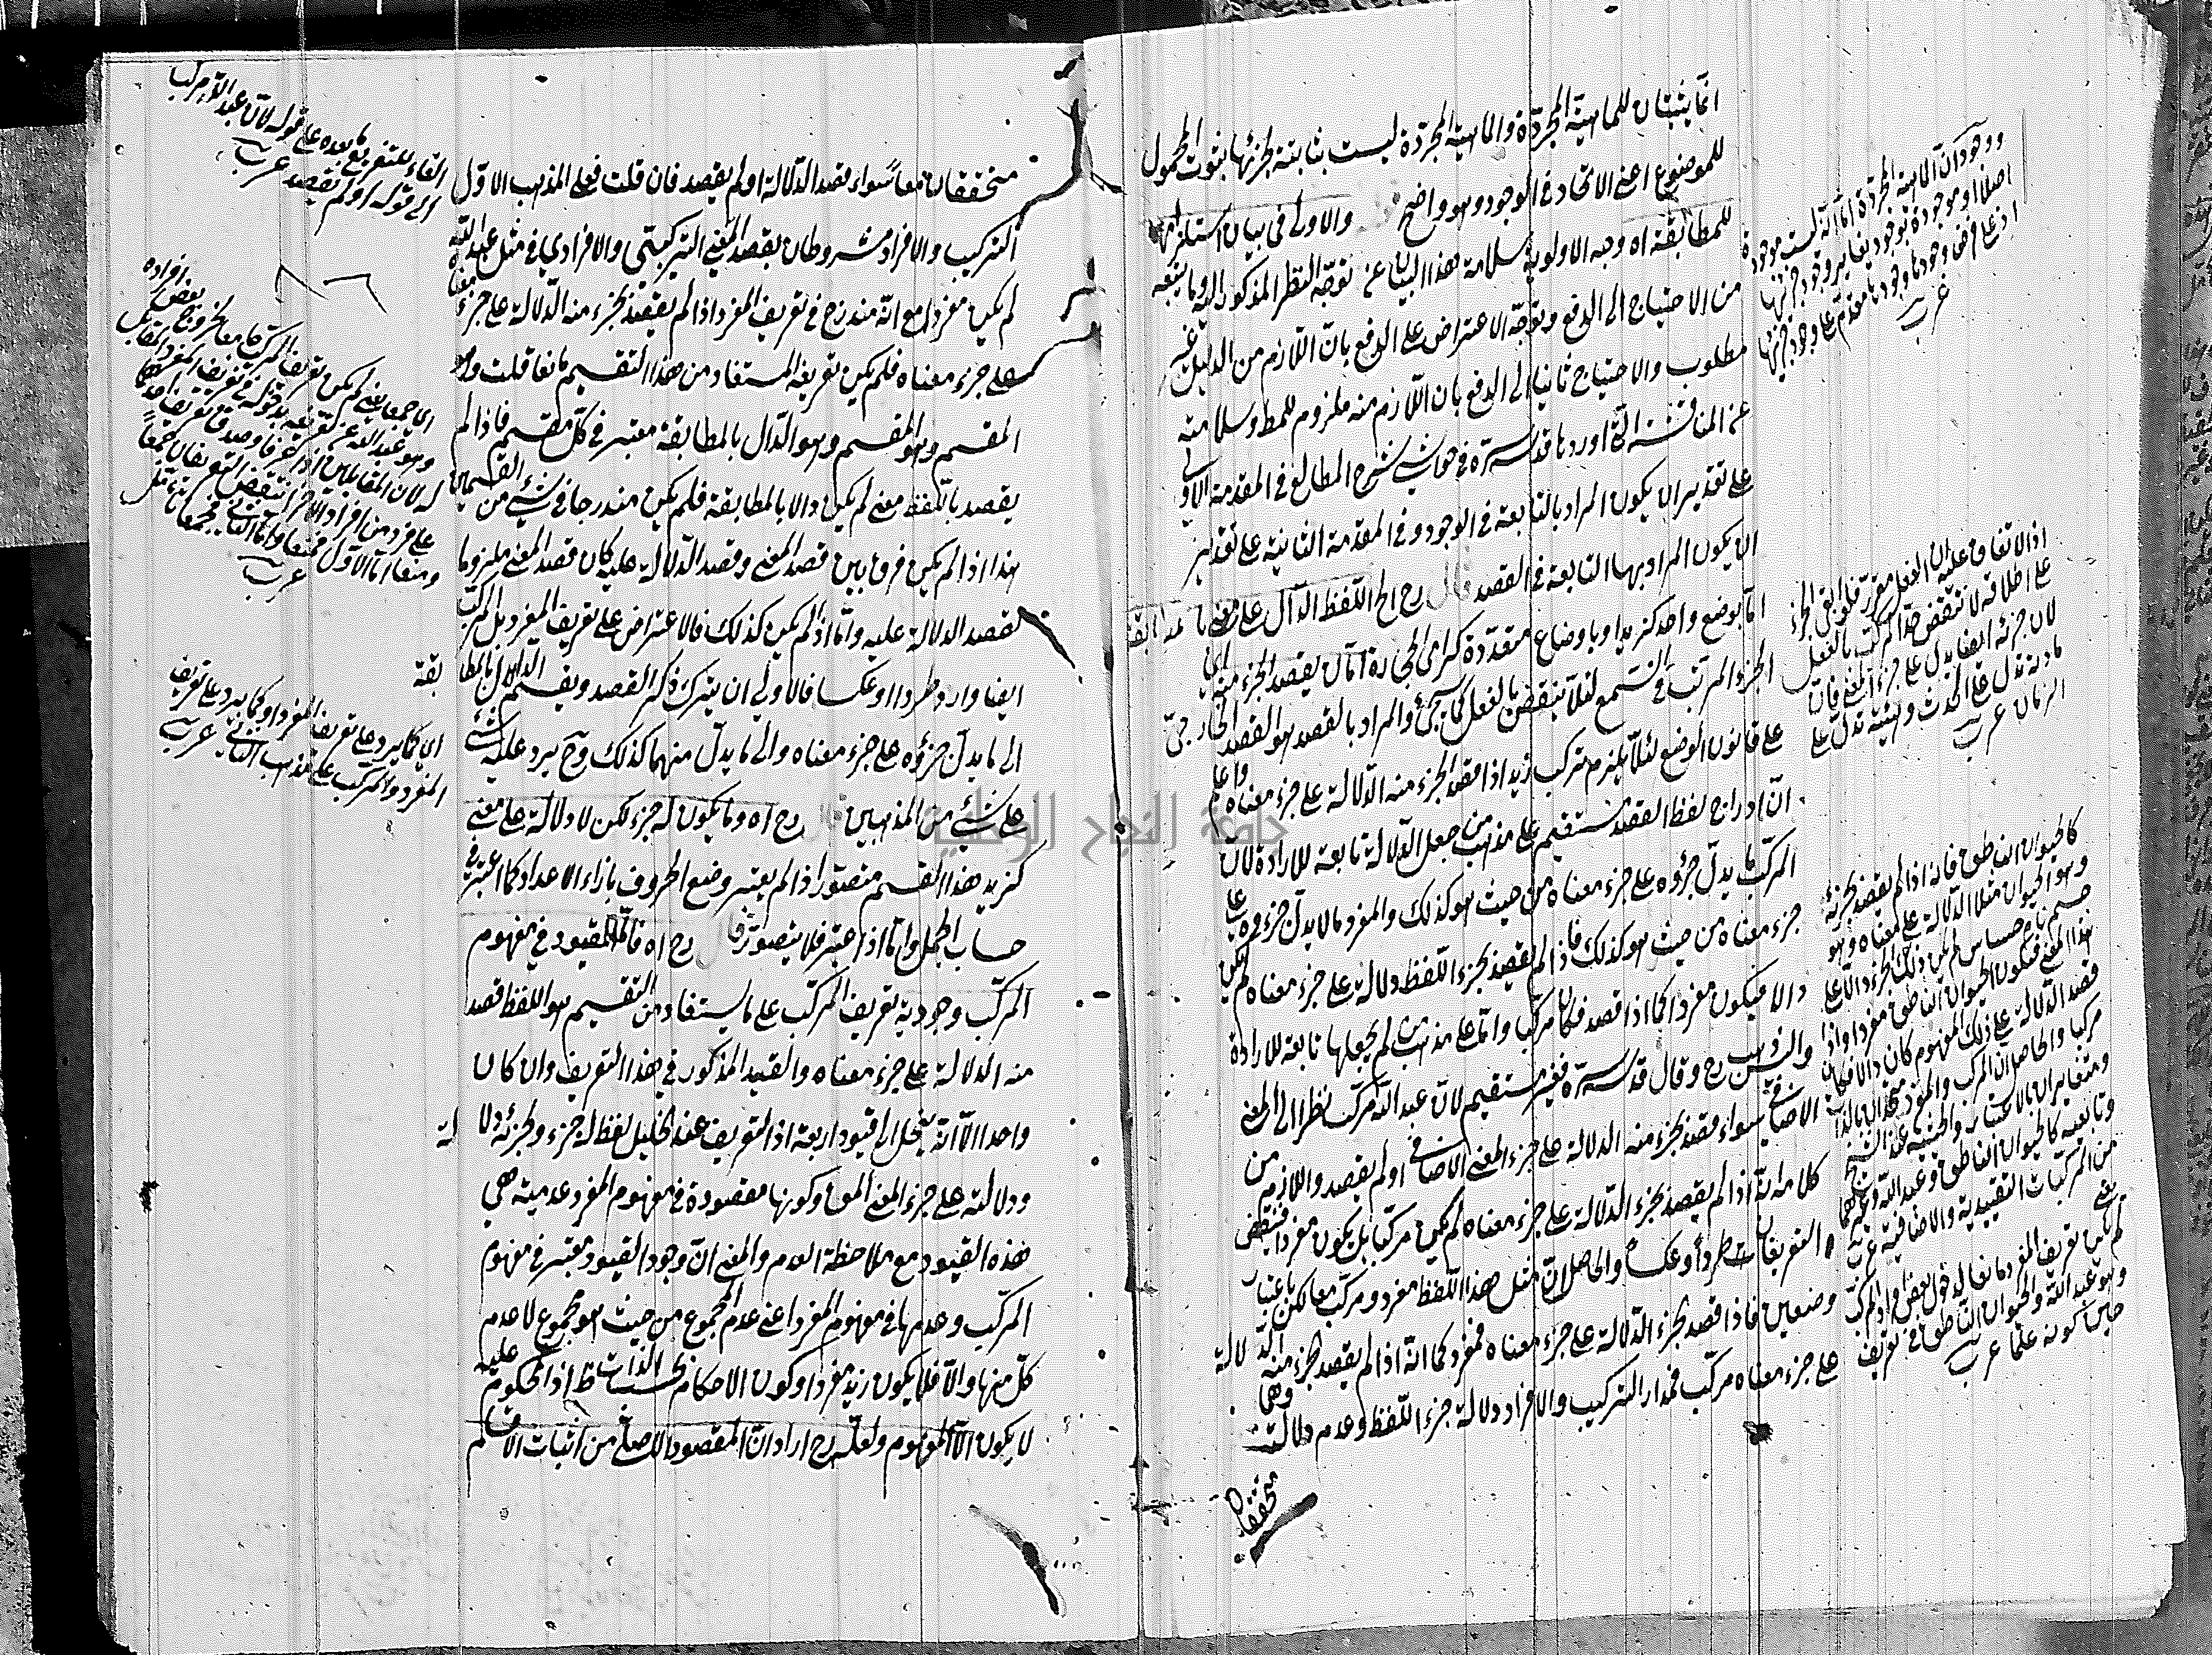 انما يثبتان للماهية المجردة والماهية المجردة ليست بثابتة لجزئها بثبوت المحمول
للموضوع اعني الاتحاد في الوجود وهو واضح والاولى في بيان استلزامها
للمطابقة اه وجه الاولوية سلامة هذا البيان عن توجه النظر المذكور اليه وما يتبعه
من الاحتياج الى الدفع وتوجه الاعتراض على الدفع بان اللازم من الدليل غير
مطلوب والاحتياج ثانيا الى الدفع بان اللازم منه ملزوم للمط وسلامته
عن المناقشة التي اوردها قدس سره في حواشي شرح المطالع في المقدمة الاولى
على تقدير ان يكون المراد بالتابعة في الوجود وفي المقدمة الثانية على تقدير
ان يكون المراد بها التابعة في القصد قال رح الخ اللفظ الدال على معنى بالمطابقة
اما بوضع واحد كزيد او باوضاع متعددة كرامي الحجارة اما ان يقصد بالجزء منه اي
الجزء المرتب في التسمع لئلا ينتقض بالفعل كما يجئ والمراد بالقصد هو القصد الجاري
على قانون الوضع لئلا يلزم تركب زيد اذا قصد بالجزء منه الدلالة على جزء معناه واعلم
ان ادراج لفظ القصد مستقيم على مذهب من جعل الدلالة تابعة للارادة لان
المركب ما يدل جزؤه على جزء معناه من حيث هو كذلك والمفرد ما لا يدل جزءه على
جزء معناه من حيث هو كذلك فاذا لم يقصد بجزء اللفظ دلالة على جزء معناه لم يكن
دالا فيكون مفردا كما اذا قصد فكان مركبا واما على مذهب من لم يجعلها تابعة للارادة
رح وقال قدس سره فغير مستقيم لان عبد الله مركب نظرا الى المعنى
الاضافي سواء قصد بجزء منه الدلالة على جزء المعنى الاضافي او لم يقصد واللازم من
كلامه انه اذا لم يقصد بجزء الدلالة على جزء معناه لم يكن مركبا بل يكون مفردا فينتقض
التعريفان طردا وعكسا والحاصل ان مثل هذا اللفظ مفرد ومركب معا لكن باعتبار
وضعين فاذا قصد بجزء الدلالة على جزء معناه فمفرد كما انه اذا لم يقصد بجزء منه الدلالة
على جزء معناه مركب فمدار التركيب والافراد دلالة جزء اللفظ وعدم دلالته وهما
متحققان
ووجود ان الماهية المجردة اما انها ليست موجودة
اصلا او موجودة بوجود يغاير وجود جزئها
اذ على فرض وجودها وجودها مقدم على وجود جزئها
عرب
اذ الاتفاق على ان الفعل مفرد فلو بقي الجزء
على اطلاقه لانتقض حد المركب بالفعل
لان جزئه ايضا يدل على جزء المعنى فان
مادته تدل على الحدث وهيئته تدل على
الزمان عرب
كالحيوان الناطق فانه اذا لم يقصد بجزئه
وهو الحيوان مثلا الدلالة على معناه وهو
جسم نام حساس لم يكن ذلك الجزء دالا على
هذا المعنى فيكون الحيوان الناطق مفردا واذا
قصد الدلالة على ذلك المفهوم كان دالا فكان
مركبا والحاصل ان المركب والمفرد متحدان بالذات
ومتغايران بالاعتبار والحيثية عند الشيخ
وتابعيه كالحيوان الناطق وعبد الله وغيرهما
من المركبات التقييدية والاضافية عرب
يعني
لم يكن تعريف المفرد مانعا لدخول بعض افراد المركب
وهو عبد الله والحيوان الناطق في تعريف
حين كونه علما عرب
متحققان معا سواء قصد الدلالة او لم يقصد فان قلت فعلى المذهب الاول
التركيب والافراد مشروطان بقصد المعنى التركيبي والافرادي في مثل عبد الله
لم يكن مفردا مع انه مندرج في تعريف المفرد اذا لم يقصد بجزء منه الدلالة على جزء معناه
على جزء معناه فلم يكن تعريفه المستفاد من هذا التقسيم مانعا قلت
المقسم وهو المقسم وهو الدال بالمطابقة معتبر في كل مقسم فاذا لم
يقصد باللفظ معنى لم يكن دالا بالمطابقة فلم يكن مندرجا في شئ من القسمين
هذا اذا لم يكن فرق بين قصد المعنى وقصد الدلالة عليه كان قصد المعنى ملزوما
لقصد الدلالة عليه واما اذا لم يكن كذلك فالاعتراض على تعريف المفرد بل المركب
ايضا وارد طردا وعكسا فالاولى ان يترك ذكر القصد ويقسم الدال بالمطابقة
الى ما يدل جزؤه على جزء معناه والى ما يدل منهما كذلك وح يرد عليه شئ
على شئ من المذهبين قال رح اه وما يكون له جزء لكن لا دلالة على معنى
كزيد هذا القسم متصور اذا لم يعتبر وضع الحروف بازاء الاعداد كما اعتبر في
حساب الجمل واما اذا اعتبر فلا يتصور قال رح اه فالقيود في مفهوم
المركب وجودية تعريف المركب على ما يستفاد من التقسيم هو اللفظ قصد
منه الدلالة على جزء معناه والقيد المذكور في هذا التعريف وان كان
واحدا الا انه ينحل الى قيود اربعة اذ التعريف عند التحليل لفظ له جزء ولجزئه دلالة
ودلالته على جزء المعنى المق وكونها مقصودة في مفهوم المفرد عدمية هي
هذه القيود مع ملاحظة العدم والمعنى ان وجود القيود معتبر في مفهوم
المركب وعدمها في مفهوم المفرد اعني عدم المجموع من حيث هو مجموع لا عدم
كل منها والا فلا يكون زيد مفردا وكون الاحكام بحسب الذات ظ اذ المحكوم عليه
لا يكون الا المفهوم ولعله رح اراد ان المقصود الاصلي من اثبات الاحكام
الفاء للتفريع ما بعده على قوله لان عبد الله مركب
الى قوله او لم يقصد عرب
اي كما يرد على تعريف المفرد او كما يرد على تعريف
المفرد والمركب على المذهب الثاني عرب